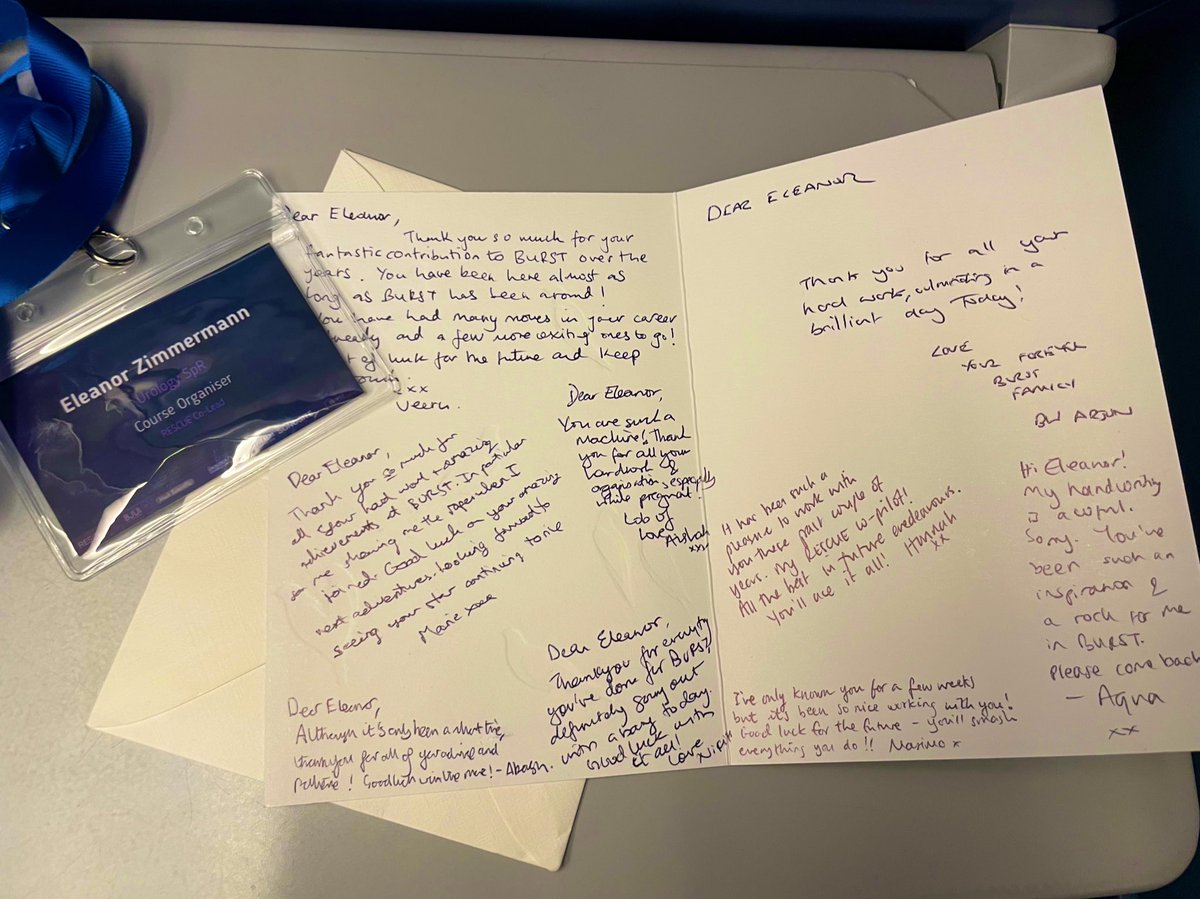 Eleanor Zimmermann
Urology SpR
Course Organiser
RESCUE Co-Lead
BURST
Dear Eleanor,
Thank you so much for your
fantastic contribution to BURST over the
years. You have been here almost as
long as BURST has been around!
You have had many moves in your career
and a few more exiting ones to go!
of luck for the future and keep
xx
Veeru.
Dear Eleanor,
You are such a
machine! Thank
you for all your
hardwork &
organisation, especially
while pregnant!
Lots of
Love
xxx
Dear Eleanor,
Thank you so much for
all your hard work + amazing
achievements at BURST. In particular
for me showing me the ropes when I
joined. Good luck on your amazing
next adventures. Looking forward to
seeing your star continuing to rise
Marie xxxx
Dear Eleanor,
Thankyou for everything
you've done for BURST,
definitely going out
with a bang today.
Good luck with
it all!
Love
Dear Eleanor,
Although it's only been a short time,
thankyou for all of your advice and
patience! Goodluck with the move! -
DEAR ELEANOR
Thank you for all your
hard work, culminating in a
brilliant day Today!
LOVE
YOUR FOREVER
BURST
FAMILY
BW ARJUN
It has been such a
pleasure to work with
you these past couple of
years. My RESCUE co-pilot!
All the best in future endeavours.
You'll ace it all! Hannah
xx
Hi Eleanor!
My handwriting
is awful.
Sorry. You've
been such an
inspiration &
a rock for me
in BURST.
Please come back
- Aqua
xx
I've only known you for a few weeks
but it's been so nice working with you!
Good luck for the future - you'll smash
everything you do!! x